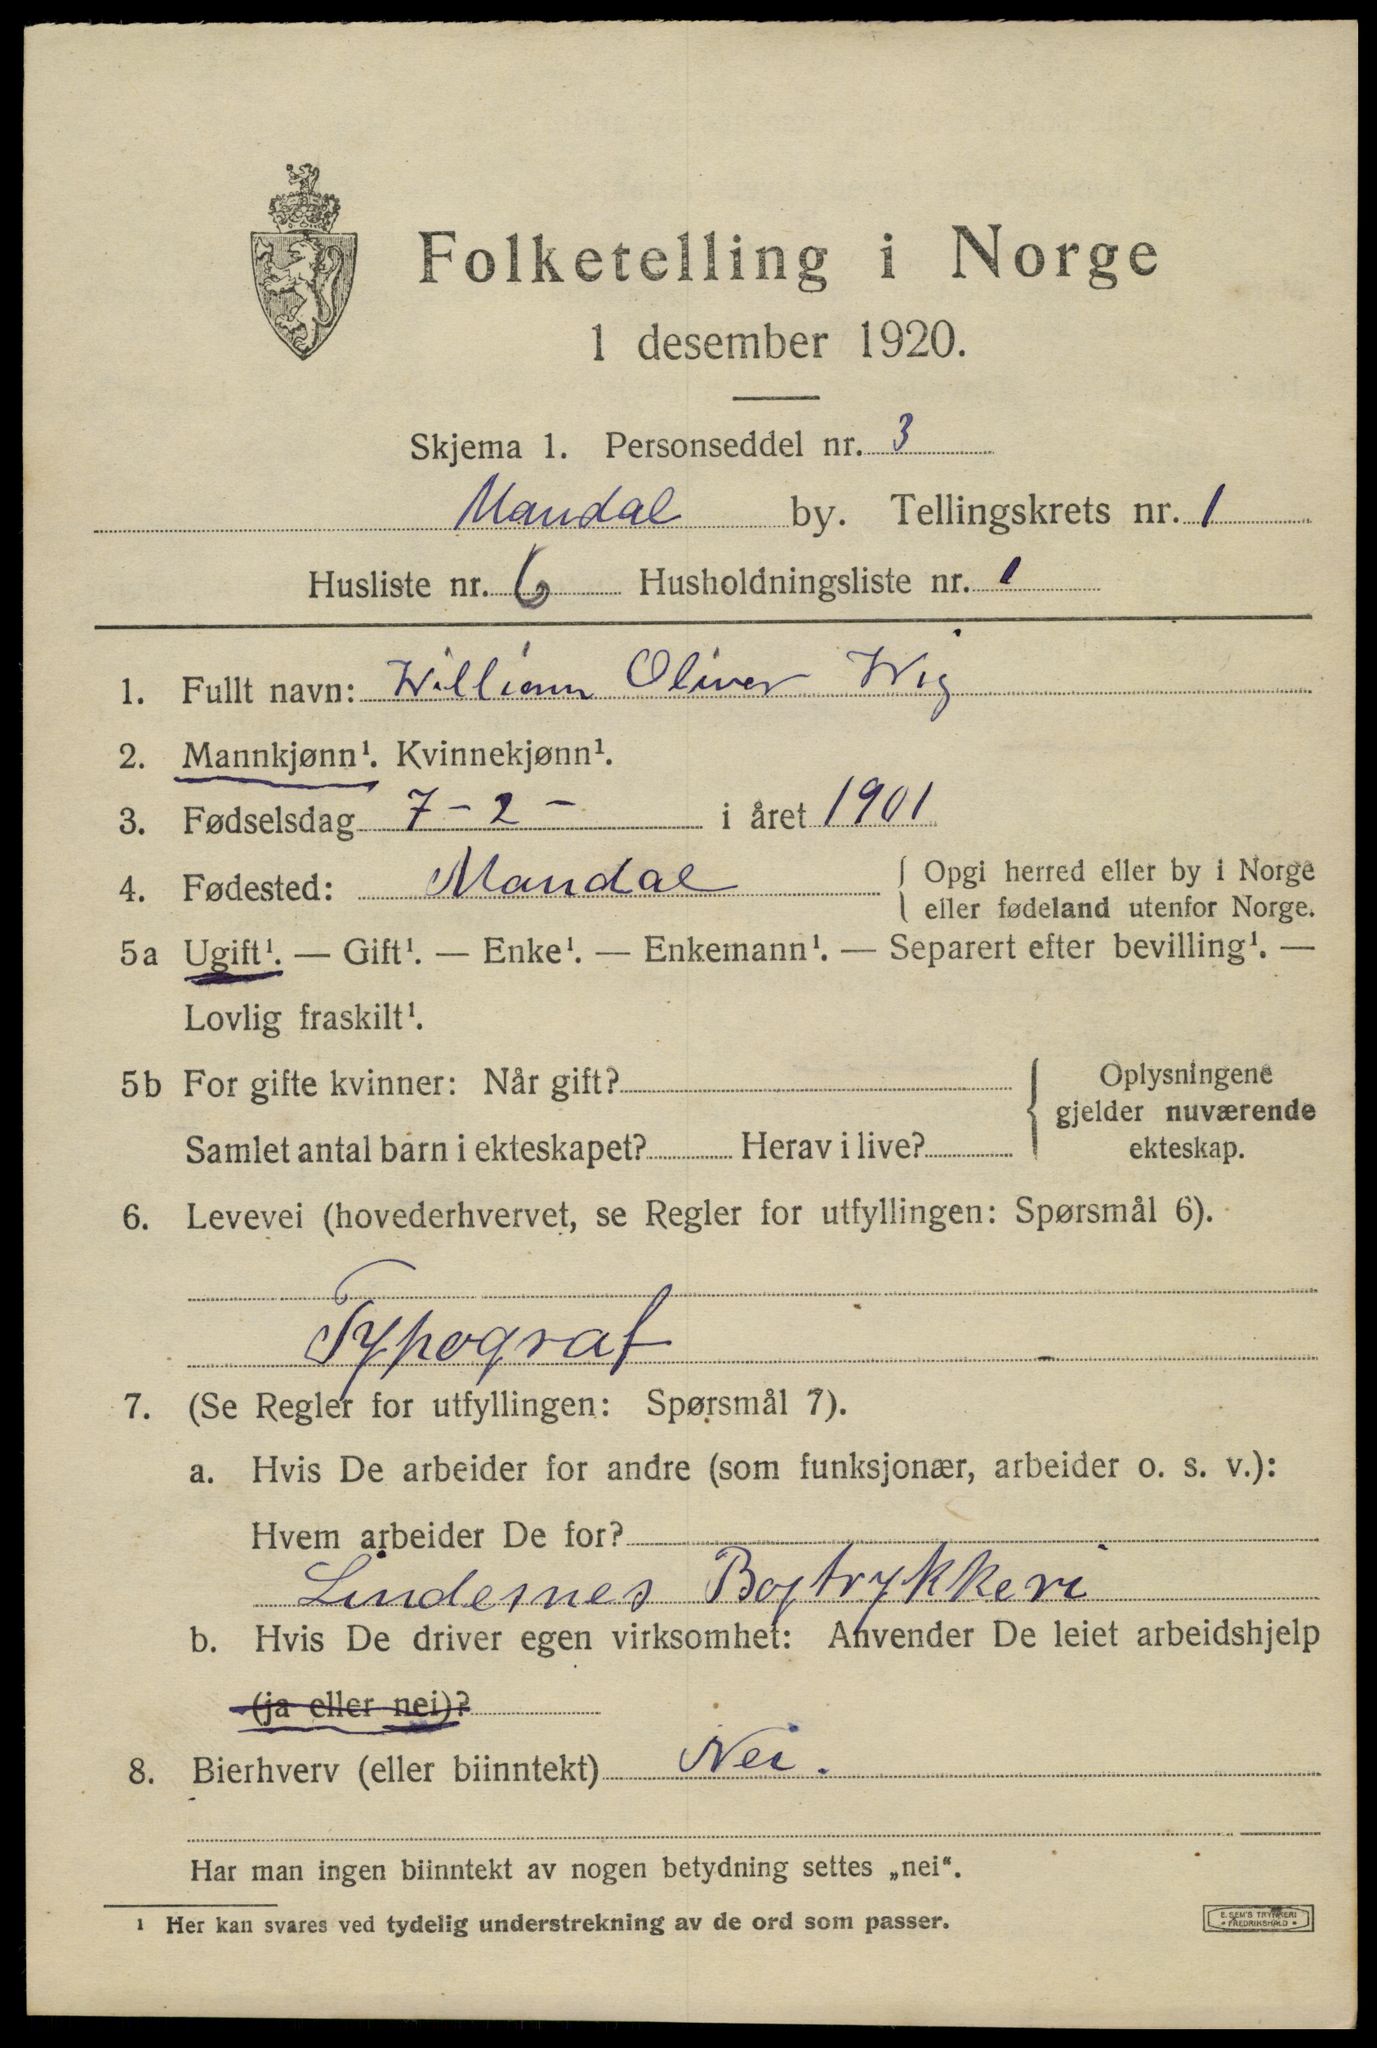 Folketelling i Norge
1 desember 1920.
Skjema 1. Personseddel nr. 3
Mandal by. Tellingskrets nr. 1
Husliste nr. 6 Husholdningsliste nr. 1
1. Fullt navn: William Oliver Wig
2. Mannkjønn¹. Kvinnekjønn¹.
3. Fødselsdag 7-2- i året 1901
4. Fødested: Mandal { Opgi herred eller by i Norge
eller fødeland utenfor Norge.
5a Ugift¹. — Gift¹. — Enke¹. — Enkemann¹. — Separert efter bevilling¹. —
Lovlig fraskilt¹.
5b For gifte kvinner: Når gift? { Oplysningene
gjelder nuværende
Samlet antal barn i ekteskapet? Herav i live? ekteskap.
6. Levevei (hovederhvervet, se Regler for utfyllingen: Spørsmål 6).
Typograf
7. (Se Regler for utfyllingen: Spørsmål 7).
a. Hvis De arbeider for andre (som funksjonær, arbeider o. s. v.):
Hvem arbeider De for?
Lindesnes Bogtrykkeri
b. Hvis De driver egen virksomhet: Anvender De leiet arbeidshjelp
(ja eller nei)?
8. Bierhverv (eller biinntekt) Nei.
Har man ingen biinntekt av nogen betydning settes „nei“.
¹ Her kan svares ved tydelig understrekning av de ord som passer.
E. SEM'S TRYKKERI
• FREDRIKSHALD •